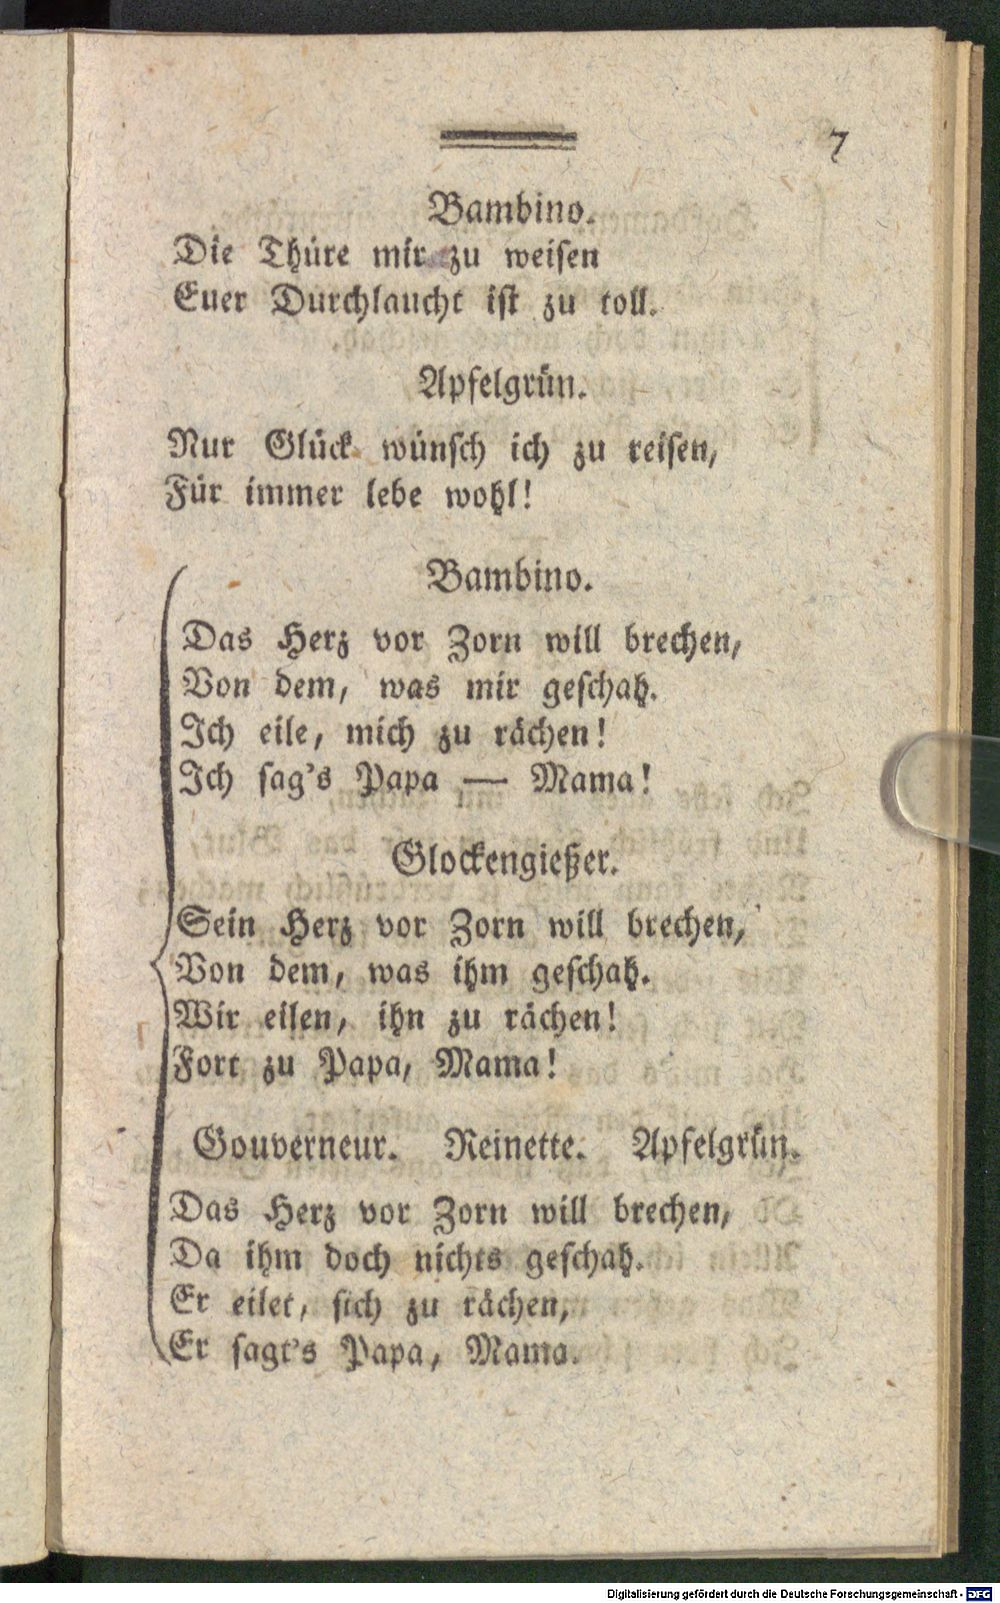 7
Bambino.
Die Thüre mir zu weisen
Euer Durchlaucht ist zu toll.
Apfelgrün.
Nur Glück wünsch ich zu reisen,
Für immer lebe wohl!
Bambino.
Das Herz vor Zorn will brechen,
Von dem, was mir geschah.
Ich eile, mich zu rächen!
Ich sag's Papa — Mama!
Glockengießer.
Sein Herz vor Zorn will brechen,
Von dem, was ihm geschah.
Wir eilen, ihn zu rächen!
Fort zu Papa, Mama!
Gouverneur. Reinette. Apfelgrün.
Das Herz vor Zorn will brechen,
Da ihm doch nichts geschah.
Er eilet, sich zu rächen,
Er sagt's Papa, Mama.
Digitalisierung gefördert durch die Deutsche Forschungsgemeinschaft - DFG